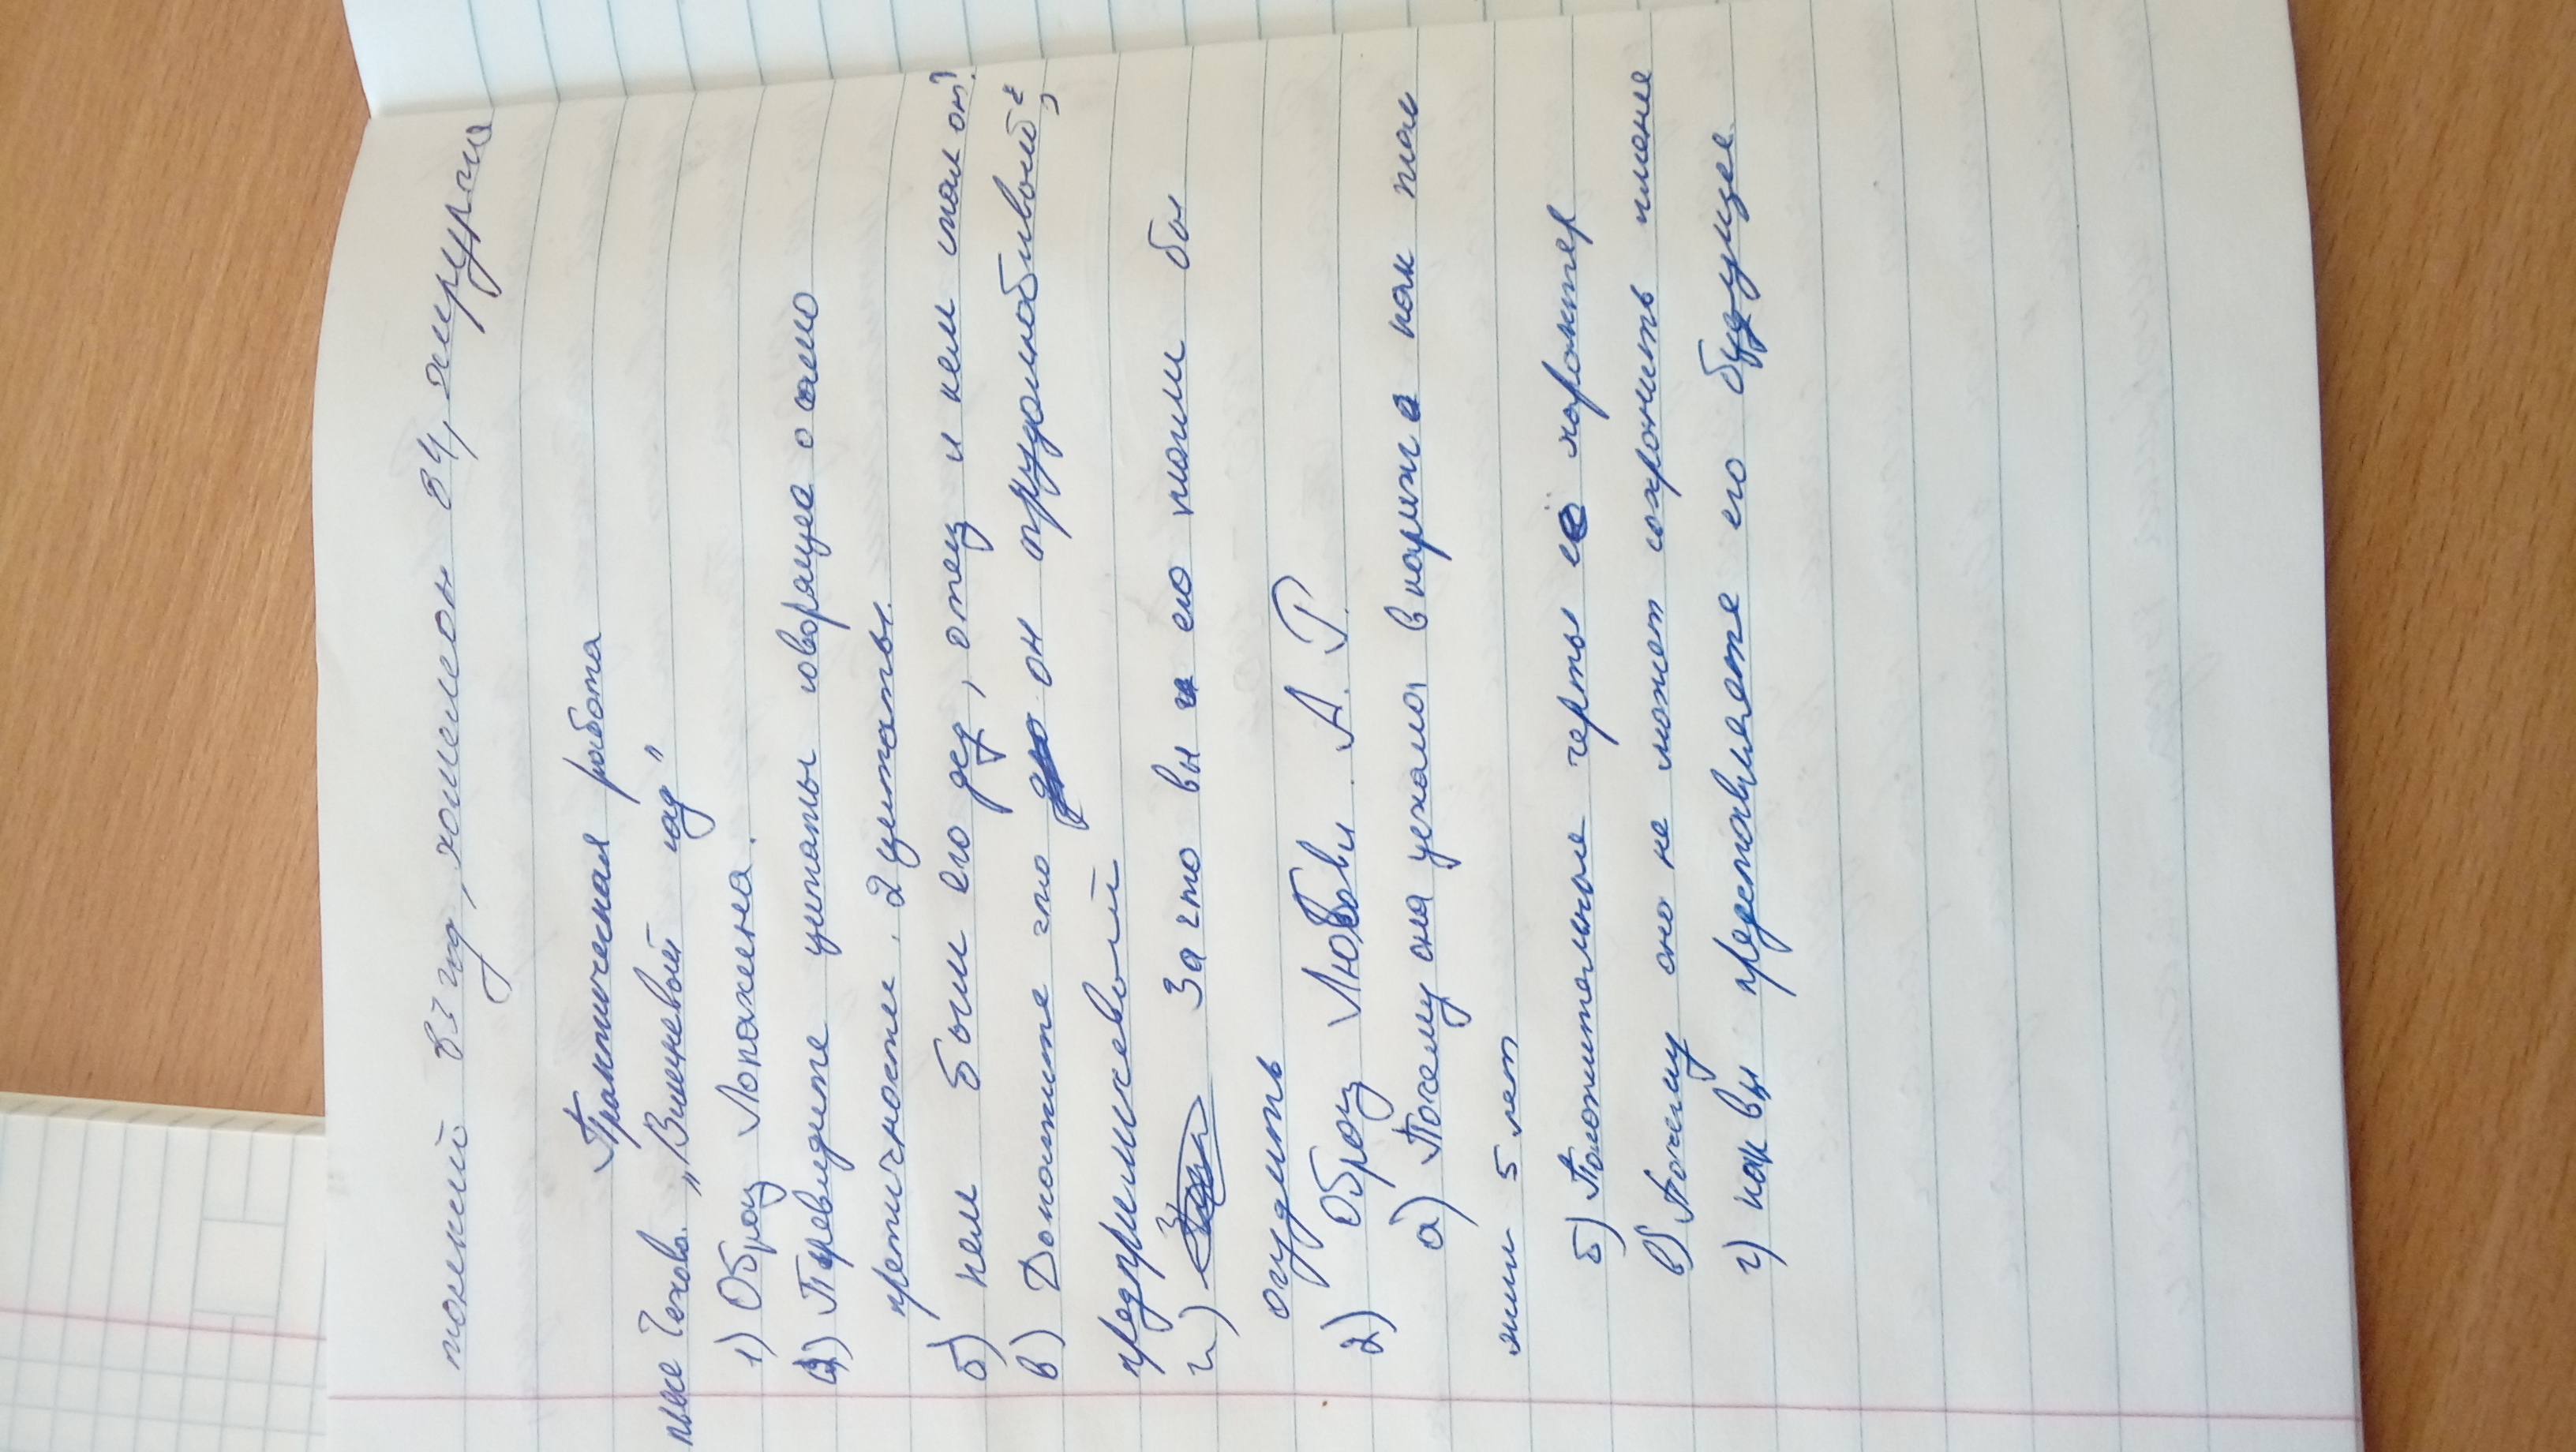 токсикий 83 год, хошмеон 84, хирурги
Практическая работа
пьесе Чехова. „Вишневый сад"
1) Образ Лопахина.
а) Приведите цитаты говорящее о само
критичности. 2 цитаты.
б) кем были его дед, отец и кем стал он?
в) Докажите что он трудолюбивый,
предприимчевый
г) За что вы его могли бы
осудить
2) Образ Любови. А. Р.
а) Почему она уехала в париж а как там
жили 5 лет
б) Положительные черты её характер
в) Почему она не может сохронить имение
г) как вы представляете его будущее.